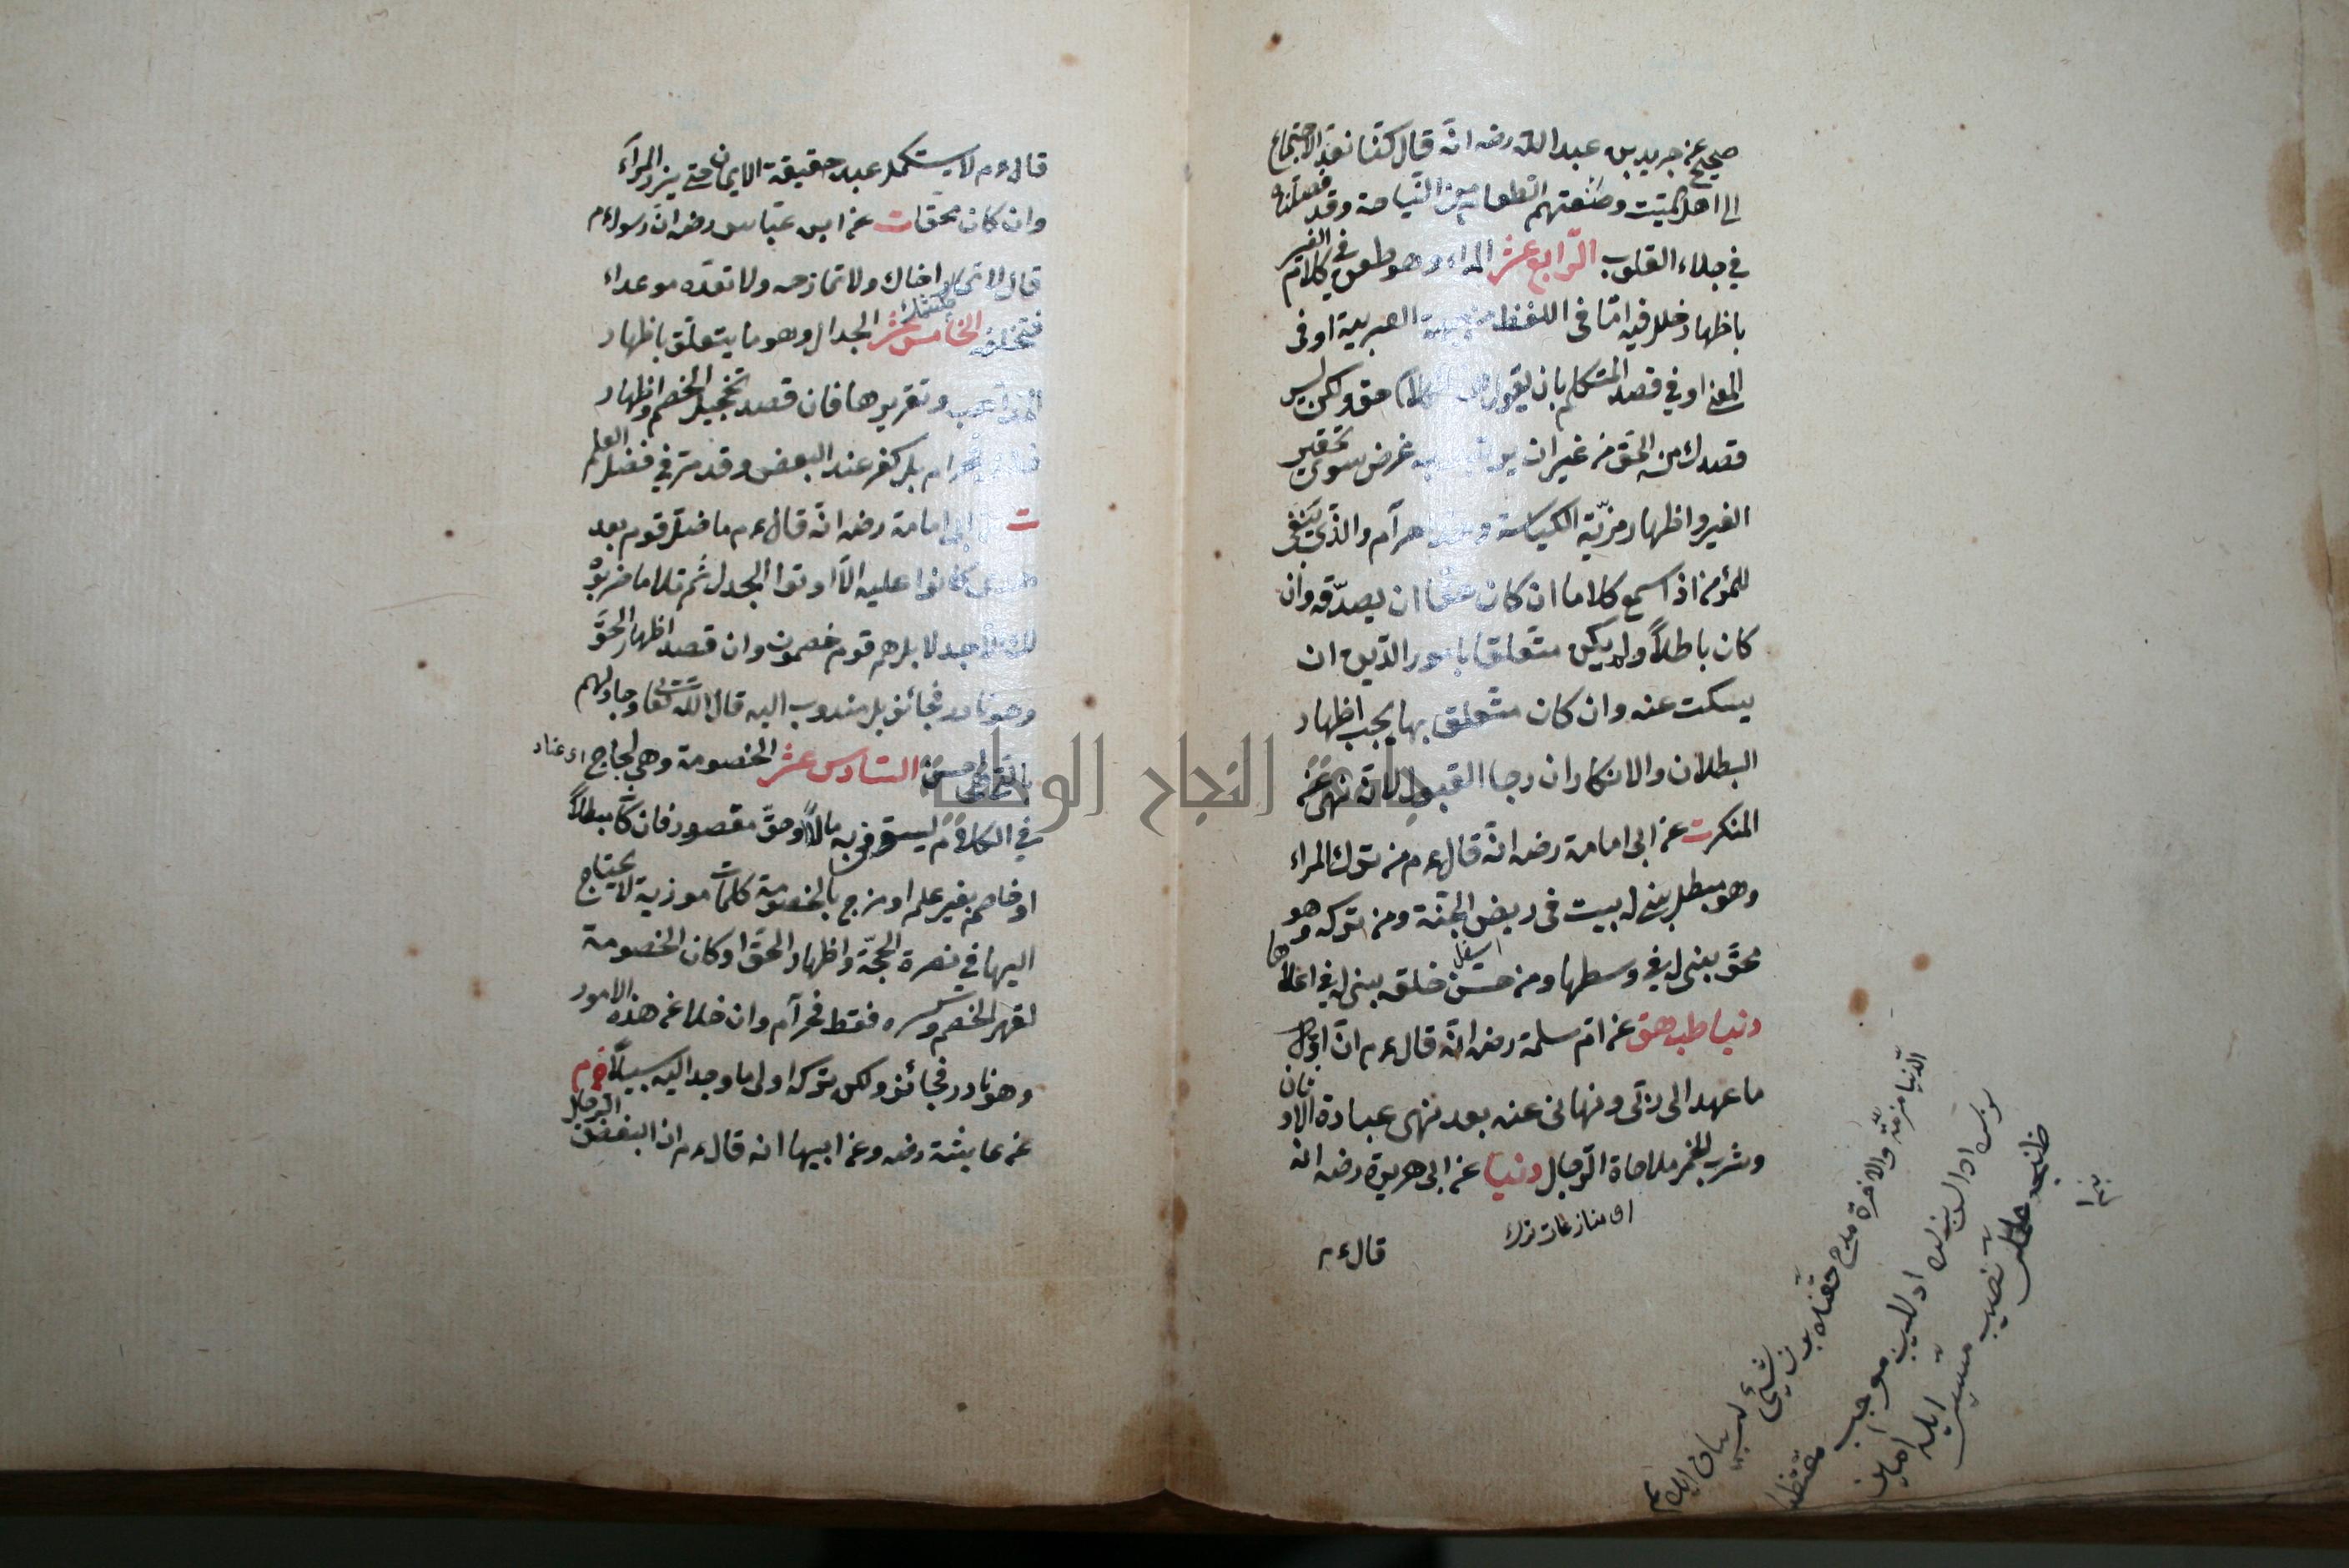 صحيح عن جرير بن عبد الله رضه انه قال كنا نعد الاجتماع
الى اهل الميت وصنعتهم الطعام من النياحة وقد فصلناه
في جلاء القلوب الرابع عشر المراء وهو طعن في كلام الغير
باظهار خلل فيه اما في اللفظ من جهة العربية او في
المعنى او في قصد المتكلم بان يقول هذا الكلام حق ولكن ليس
قصدك منه الحق من غير ان يرتبط به غرض سوى تحقير
الغير واظهار مزية الكياسة وهذا حرام والذي ينبغي
للمؤمن اذا سمع كلاما ان كان حقا ان يصدقه وان
كان باطلا ولم يكن متعلقا بامور الدين ان
يسكت عنه وان كان متعلق بها يجب اظهار
البطلان والانكار ان رجا القبول لانه نهى عن
المنكر ت عن ابى امامة رضه انه قال ءم من ترك المراء
وهو مبطل بنى له بيت فى ربض الجنة ومن تركه وهو
محق بنى له في وسطها ومن حسن خلقه بنى له في اعلاها
اسفل
دنيا طب هق عن ام سلمة رضه انه قال ءم ان اول
ما عهد الى ربى ونهانى عنه بعد نهى عبادة الاوثان
وشرب الخمر ملاحاة الرجال دنيا عن ابى هريرة رضه انه
اى منازعات ترك
قال ءم
الدنيا مزمة والاخرة مدح
قال ءم لا يستكمل عبد حقيقة الايمان حتى يذر المراء
وان كان محقا ت عن ابن عباس رضه ان رسول ءم
قال لا تمار اخاك ولا تمازحه ولا تعده موعدا
فتخلفه الخامس عشر الجدال وهو ما يتعلق باظهار
المذاهب وتقريرها فان قصد تخجيل الخصم واظهار
فضله فحرام بل كفر عند البعض وقد مر في فضل العلم
ت عن ابى امامة رضه انه قال ءم ما ضل قوم بعد
هدى كانوا عليه الا اوتوا الجدل ثم تلا ما ضربوه
لك الا جدلا بل هم قوم خصمون وان قصد اظهار الحق
وهو نادر فجائز بل مندوب اليه قال الله تعا وجادلهم
بالتى هى احسن السادس عشر الخصومة وهي لجاج اى عناد
في الكلام ليستوفى به مالا او حق مقصود فان كا مبطلا
او خاصم بغير علم او مزج بالخصومة كلمات موذية لا يحتاج
اليها في نصرة الحجة واظهار الحق او كان الخصومة
لقهر الخصم وكسره فقط فحرام وان خلا عن هذه الامور
وهو نادر فجائز ولكن تركه اولى ما وجد اليه سبيلا خ م
عن عايشة رضه وعن ابيها انه قال ءم ان ابغض الرجال
النجاح الوطنية